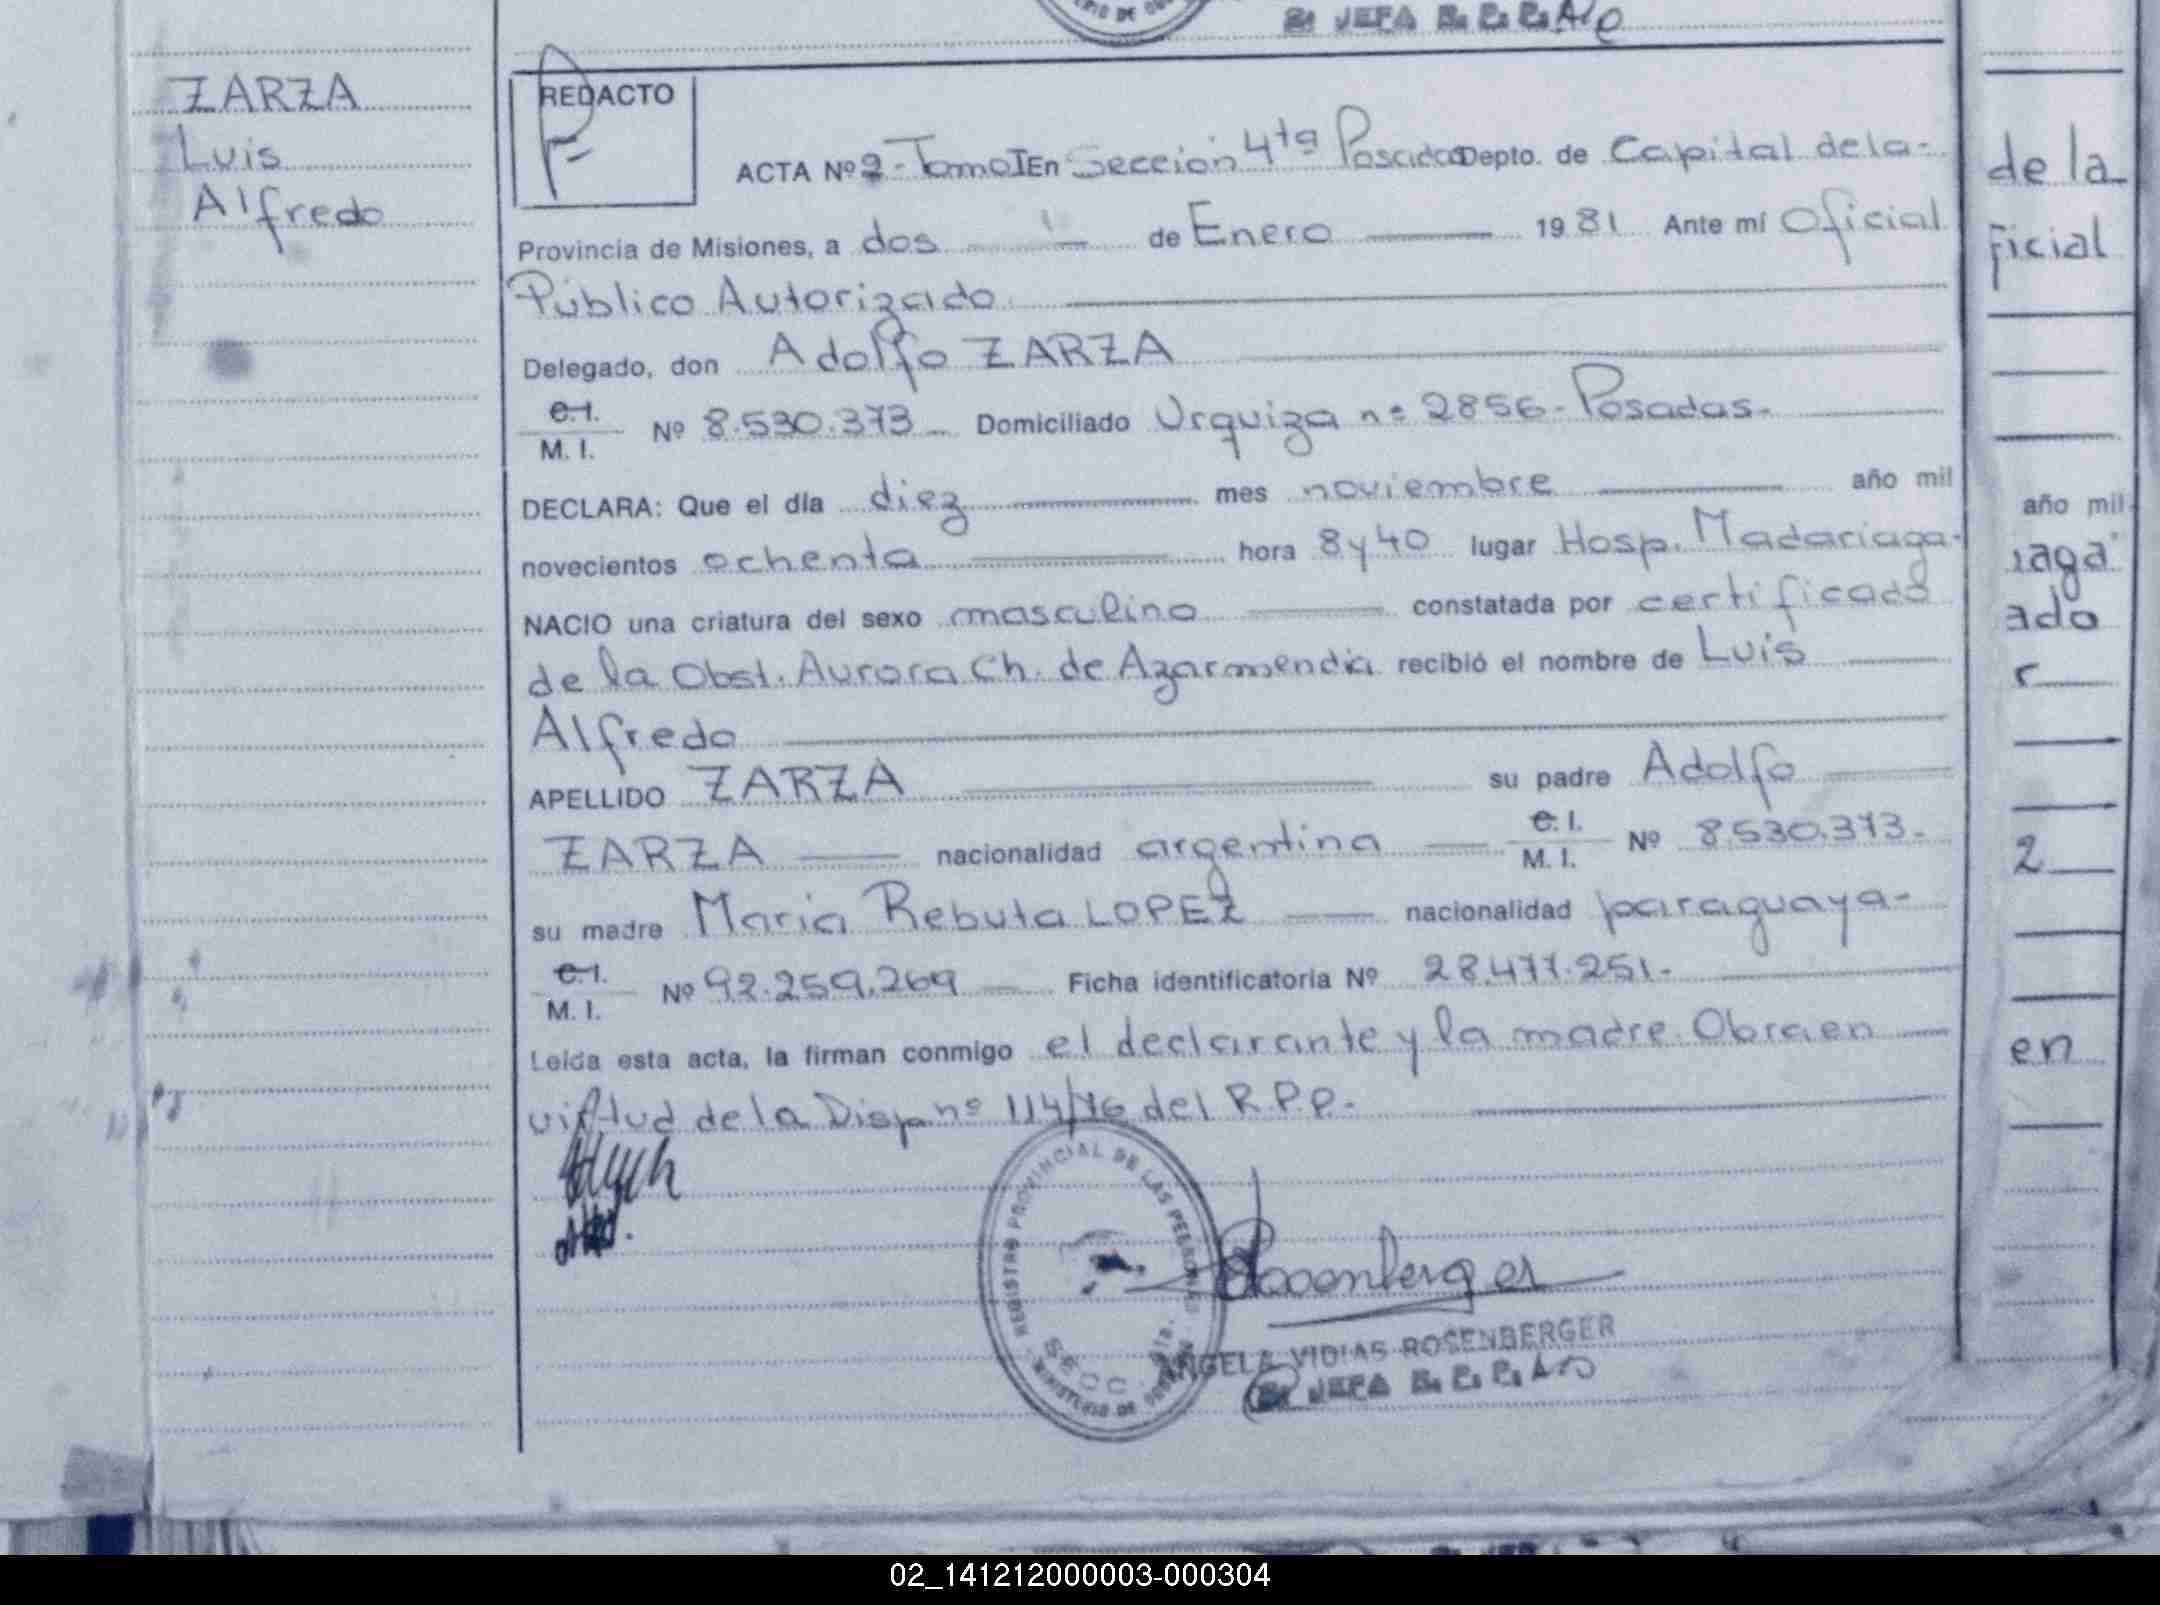 Bi JEFA
ZARZA
Luis
Alfredo
REDACTO
ACTA Nº 2 - Tomo I En Sección 4ta Posadas Depto. de Capital de la-
Provincia de Misiones, a dos de Enero 1981 Ante mí Oficial
Público Autorizado
Delegado, don Adolfo ZARZA
C.I.
M. I. Nº 8.530.373 Domiciliado Urquiza nº 2856 - Posadas.
DECLARA: Que el día diez mes noviembre año mil
novecientos ochenta hora 8 y 40 lugar Hosp. Madariaga-
NACIO una criatura del sexo masculino constatada por certificado
de la Obst. Aurora Ch. de Azarmendia recibió el nombre de Luis
Alfredo
APELLIDO ZARZA su padre Adolfo
ZARZA nacionalidad argentina C.I. M. I. Nº 8.530.373.
su madre Maria Rebuta LOPEZ nacionalidad paraguaya-
C.I.
M. I. Nº 92.259.269 Ficha identificatoria Nº 28.477.251-
Leída esta acta, la firman conmigo el declarante y la madre. Obra en
virtud de la Disp nº 114/76 del R.P.P.-
REGISTRO PROVINCIAL DE LAS PERSONAS
SECC. 4ta.
MINISTERIO DE
Rosenberger
ANGELA VIDIAS ROSENBERGER
JEFA
de la
ficial
año mil
iaga
ado
r
2
en
02_141212000003-000304